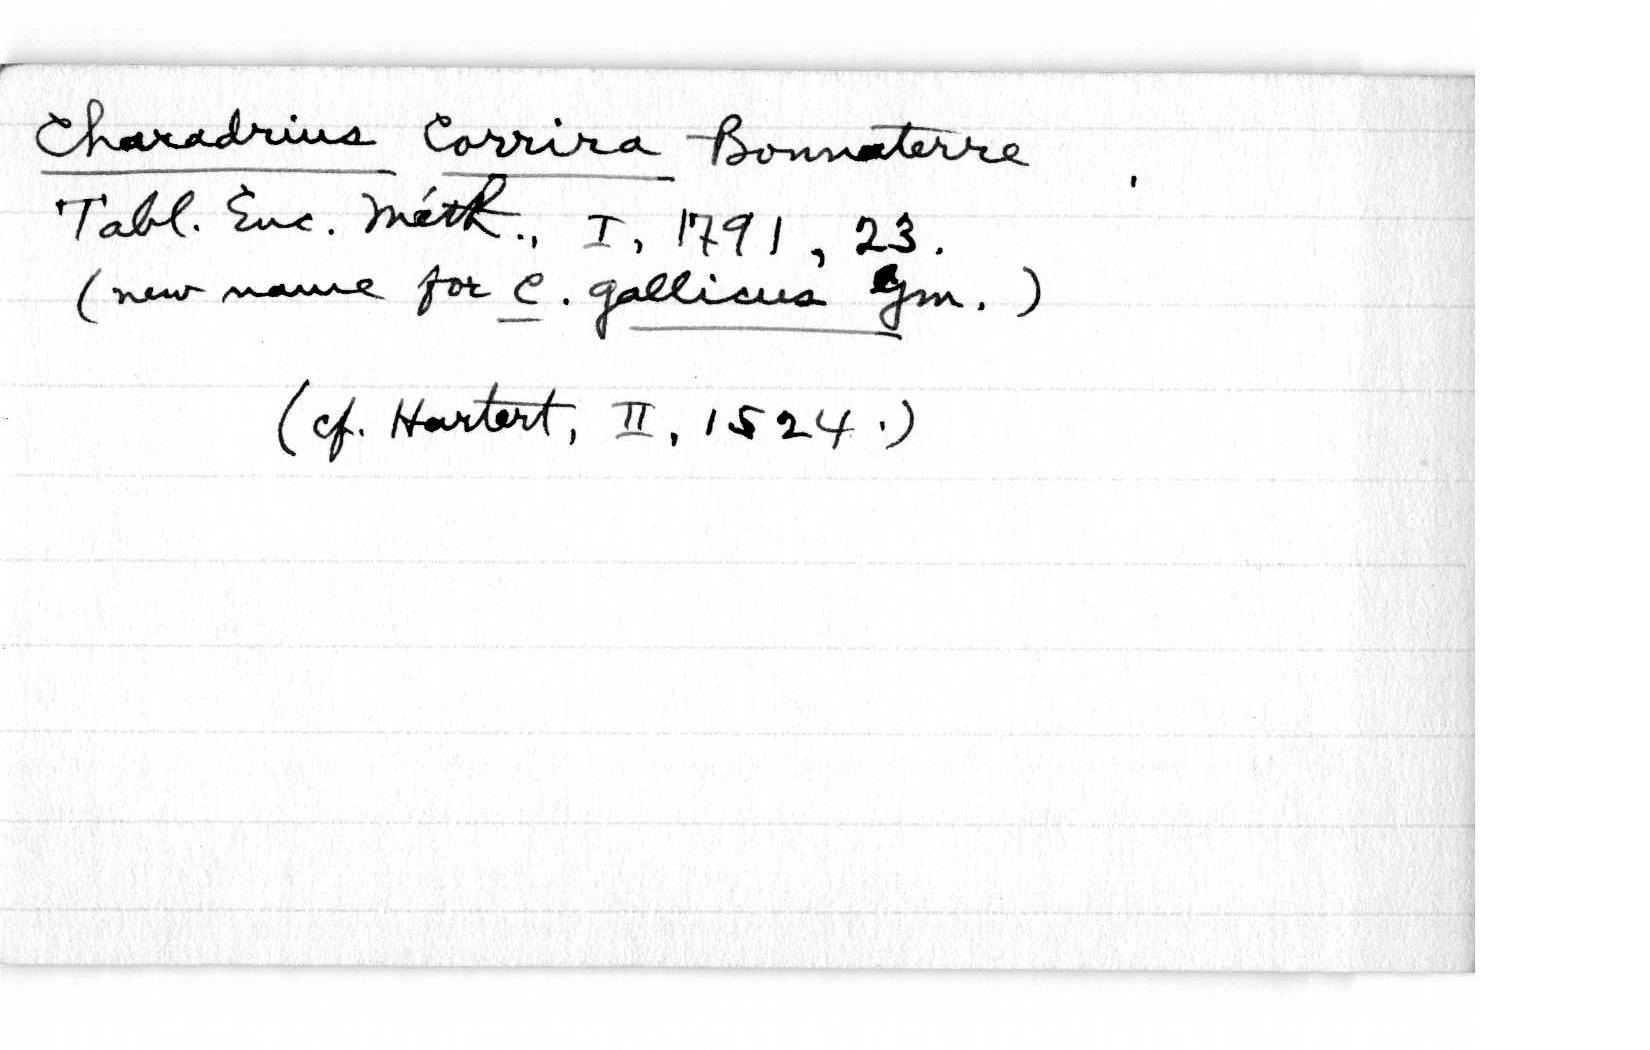 Charadrius Corrira Bonnaterre
Tabl. Enc. Méth., I, 1791, 23.
(new name for C. gallicus Gm.)
(cf. Hartert, II, 1524.)